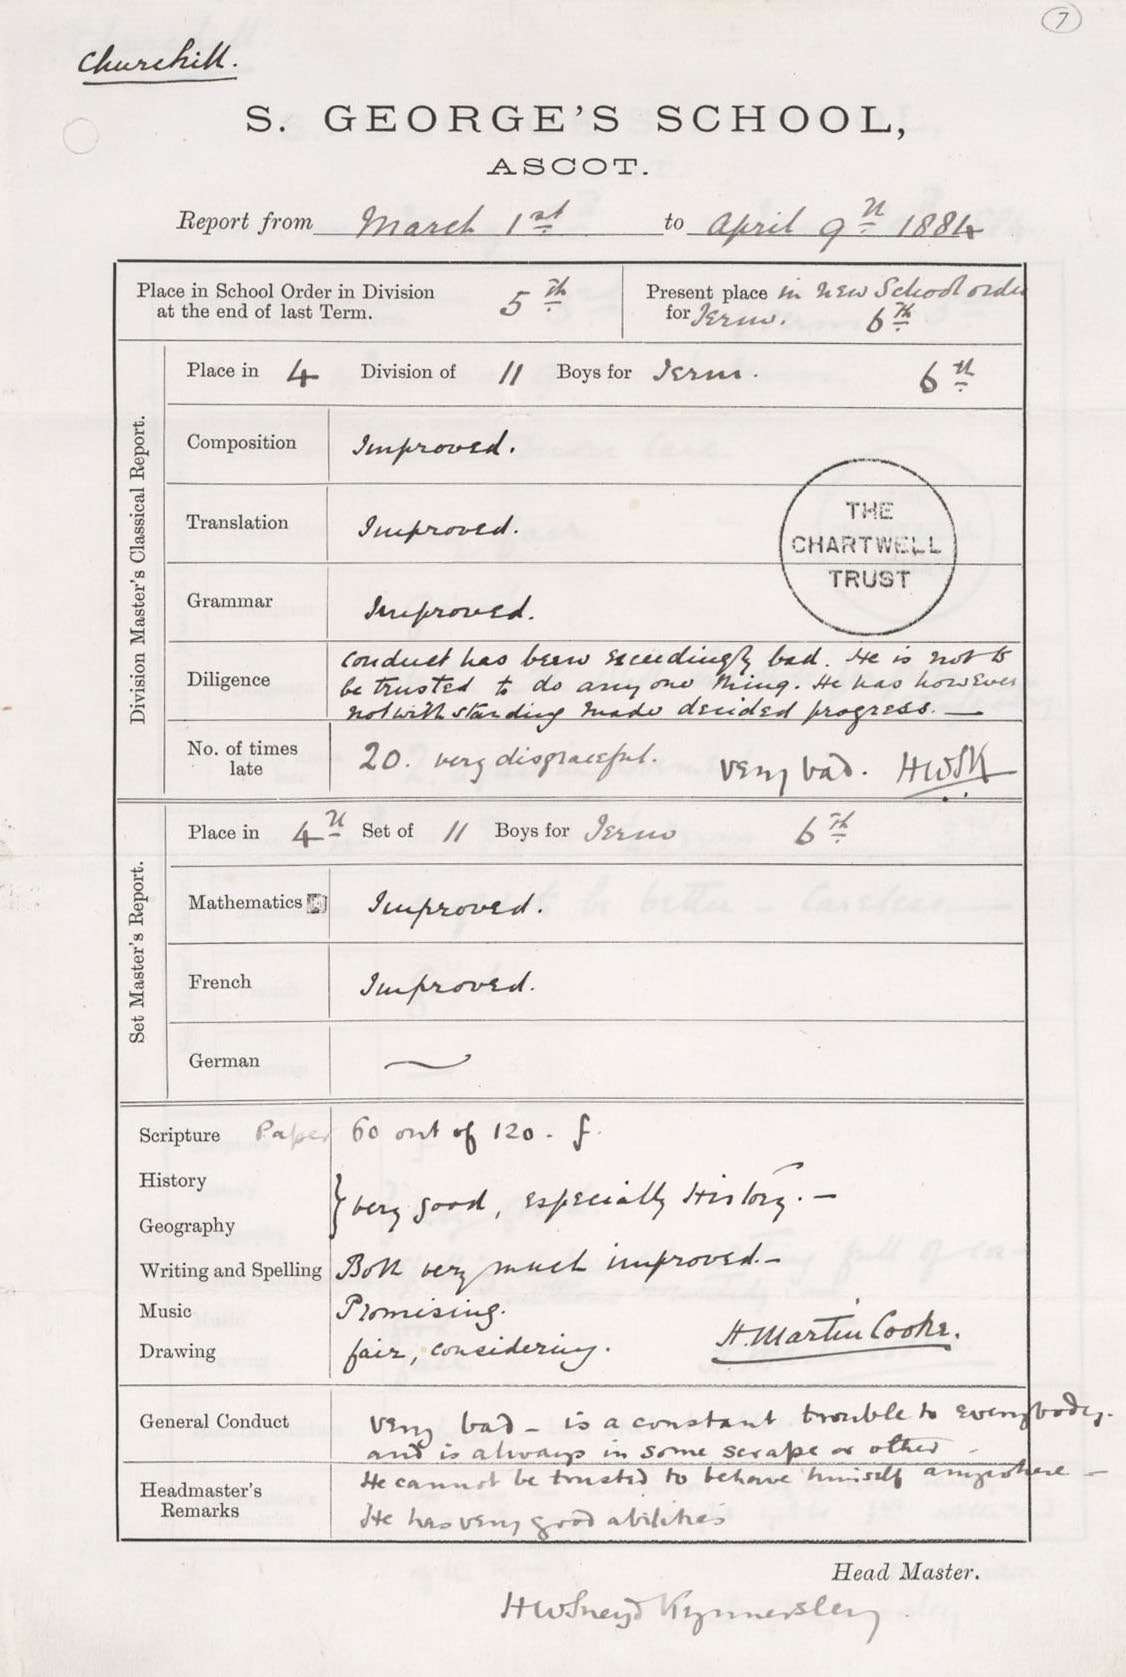 7
Churchill.
S. GEORGE'S SCHOOL,
ASCOT.
Report from March 1st to April 9th 1884
Place in School Order in Division
at the end of last Term. 5th
Present place in New School order
for Term. 6th
Division Master's Classical Report.
Place in 4 Division of 11 Boys for Term. 6th
Composition Improved.
Translation Improved.
Grammar Improved.
THE
CHARTWELL
TRUST
Diligence
Conduct has been exceedingly bad. He is not to
be trusted to do any one thing. He has however
notwithstanding made decided progress. —
No. of times
late
20. very disgraceful. Very bad. HWSK
Set Master's Report.
Place in 4th Set of 11 Boys for Term 6th
Mathematics Improved.
French Improved.
German
Scripture Paper 60 out of 120. f.
History
Geography
} very good, especially History. —
Writing and Spelling Both very much improved. —
Music Promising.
Drawing fair, considering.
H. Martin Cooke.
General Conduct
Very bad – is a constant trouble to everybody.
and is always in some scrape or other –
Headmaster's
Remarks
He cannot be trusted to behave himself anywhere –
He has very good abilities
Head Master.
HW Sneyd Kynnersley